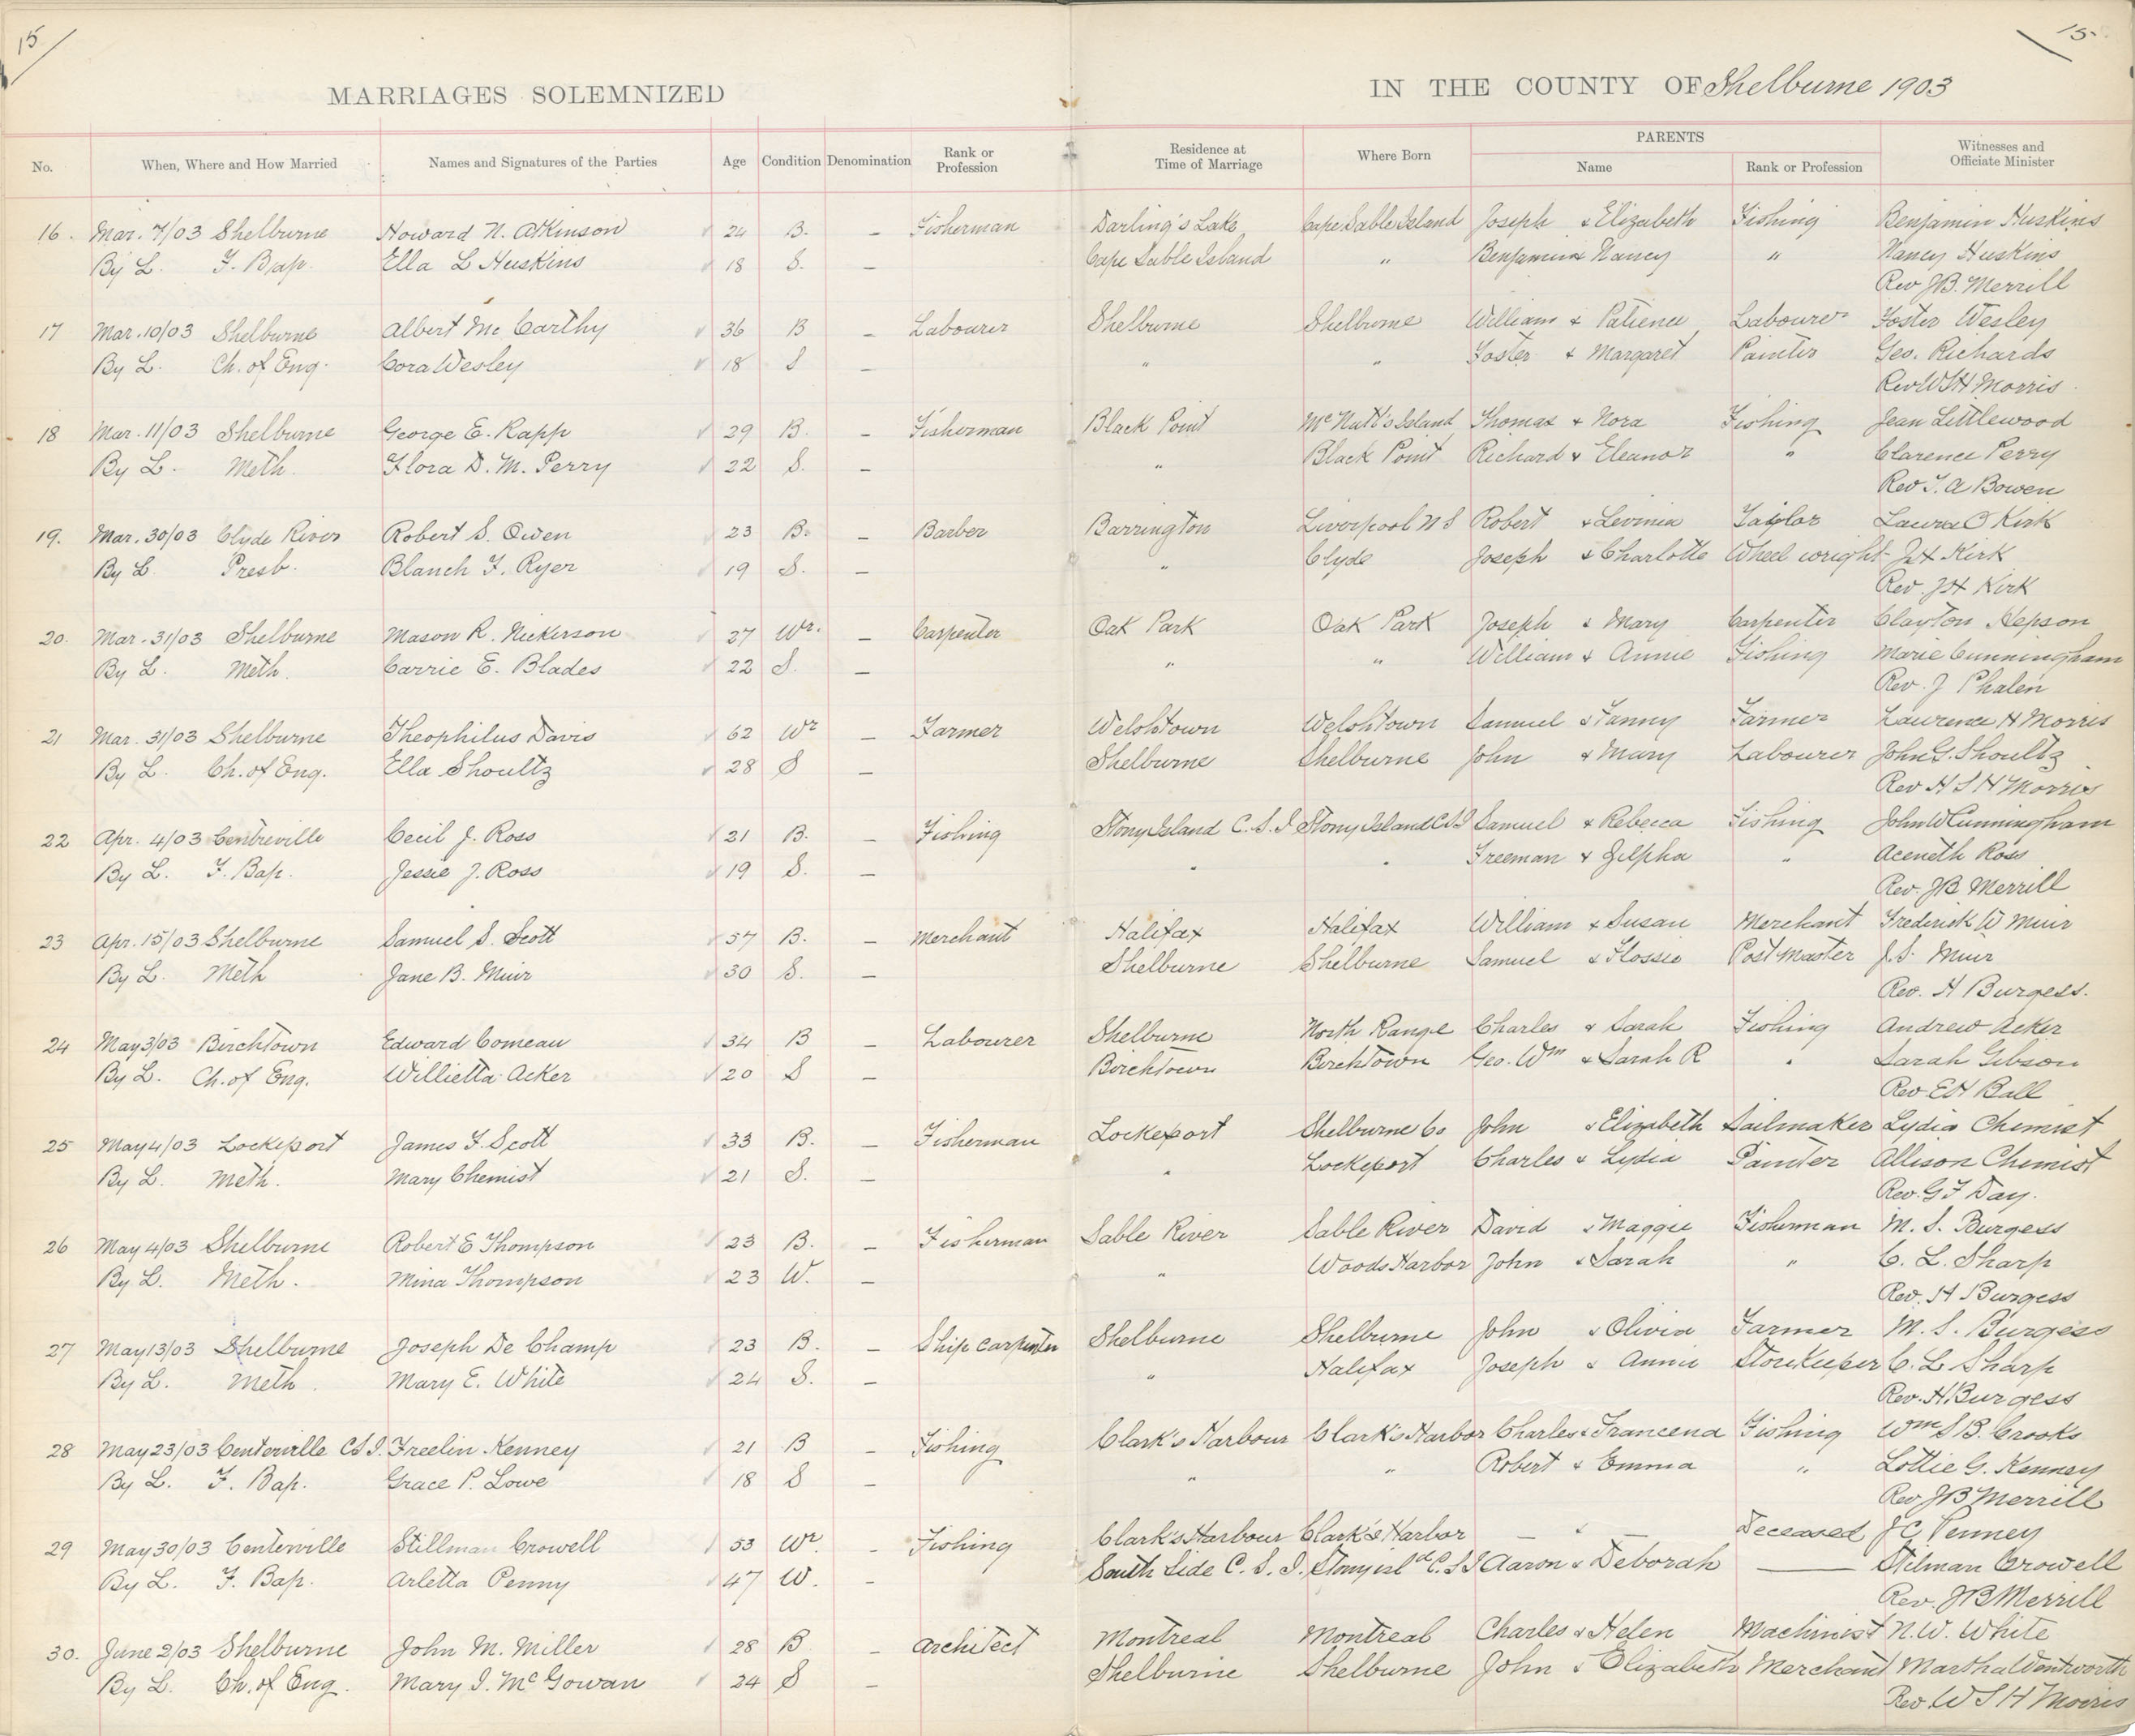 15
15.
MARRIAGES SOLEMNIZED IN THE COUNTY OF Shelburne 1903
No. When, Where and How Married Names and Signatures of the Parties Age Condition Denomination Rank or Profession Residence at Time of Marriage Where Born PARENTS Name Rank or Profession Witnesses and Officiate Minister
16. Mar. 7/03 Shelburne Howard N. Atkinson 24 B. – Fisherman Darling's Lake Cape Sable Island Joseph & Elizabeth Fishing Benjamin Huskins
By L. F. Bap. Ella L Huskins 18 S. – Cape Sable Island " Benjamin & Nancy " Nancy Huskins
Rev J.B. Merrill
17 Mar. 10/03 Shelburne Albert Mc Carthy 36 B – Labourer Shelburne Shelburne William & Patience Labourer Foster Wesley
By L. Ch. of Eng. Cora Wesley 18 S – " " Foster & Margaret Painter Geo. Richards
Rev WSH Morris.
18 Mar. 11/03 Shelburne George E. Rapp 29 B. – Fisherman Black Point McNutt's Island Thomas & Nora Fishing Jean Littlewood
By L. Meth. Flora D. M. Perry 22 S. – " Black Point Richard & Eleanor " Clarence Perry
Rev T. A Bowen
19. Mar. 30/03 Clyde River Robert S. Owen 23 B. – Barber Barrington Liverpool N S Robert & Levinia Taylor Laura O Kirk
By L Presb. Blanch F. Ryer 19 S. – " Clyde Joseph & Charlotte Wheel wright JH Kirk
Rev. JH Kirk
20. Mar. 31/03 Shelburne Mason R. Nickerson 27 Wr. – Carpenter Oak Park Oak Park Joseph & Mary Carpenter Clayton Hepson
By L. Meth. Carrie E. Blades 22 S. – " " William & Annie Fishing Marie Cunningham
Rev. J Phalen
21 Mar. 31/03 Shelburne Theophilus Davis 62 Wr – Farmer Welshtown Welshtown Samuel & Fanny Farmer Lawrence H Morris
By L. Ch. of Eng. Ella Shoultz 28 S – Shelburne Shelburne John & Mary Labourer John G. Shoultz
Rev H S H Morris
22 Apr. 4/03 Centreville Cecil J. Ross 21 B. – Fishing Stony Island C. S. I Stony Island CSI Samuel & Rebecca Fishing John W Cunningham
By L. F. Bap. Jessie J. Ross 19 S. – " " Freeman & Zilpha " Aceneth Ross
Rev. JB Merrill
23 Apr. 15/03 Shelburne Samuel S. Scott 57 B. – Merchant Halifax Halifax William & Susan Merchant Frederick W Muir
By L. Meth Jane B. Muir 30 S. – Shelburne Shelburne Samuel & Flossie Post Master J. S. Muir
Rev. H Burgess.
24 May 3/03 Birchtown Edward Comeau 34 B – Labourer Shelburne North Range Charles & Sarah Fishing Andrew Acker
By L. Ch. of Eng. Willietta Acker 20 S – Birchtown Birchtown Geo. Wm & Sarah R " Sarah Gibson
Rev EH Ball
25 May 4/03 Lockeport James F. Scott 33 B. – Fisherman Lockeport Shelburne Co John & Elizabeth Sailmaker Lydia Chemist
By L. Meth. Mary Chemist 21 S. – " Lockeport Charles & Lydia Painter Allison Chemist
Rev. G F Day.
26 May 4/03 Shelburne Robert E Thompson 23 B. – Fisherman Sable River Sable River David & Maggie Fisherman M. S. Burgess
By L. Meth. Mina Thompson 23 W. – " Woods Harbor John & Sarah " C. L. Sharp
Rev. H Burgess
27 May 13/03 Shelburne Joseph De Champ 23 B. – Ship Carpenter Shelburne Shelburne John & Olivia Farmer M. S. Burgess
By L. Meth. Mary E. White 24 S. – " Halifax Joseph & Annie Storekeeper C. L Sharp
Rev. H Burgess
28 May 23/03 Centerville CSI. Freelin Kenney 21 B – Fishing Clark's Harbour Clark's Harbor Charles & Francena Fishing Wm S B. Crooks
By L. F. Bap. Grace P. Lowe 18 S – " " Robert & Emma " Lottie G. Kenney
Rev JB Merrill
29 May 30/03 Centerville Stillman Crowell 53 Wr. – Fishing Clark's Harbour Clark's Harbor – " – Deceased J C Penney
By L. F. Bap. Arletta Penny 47 W. – South Side C. S. I. Stony isld C. S I Aaron & Deborah — Stilman Crowell
Rev. JB Merrill
30. June 2/03 Shelburne John M. Miller 28 B – Architect Montreal Montreal Charles & Helen Machinist N. W. White
By L. Ch. of Eng. Mary I. McGowan 24 S – Shelburne Shelburne John & Elizabeth Merchant Martha Wentworth
Rev. W S H Morris